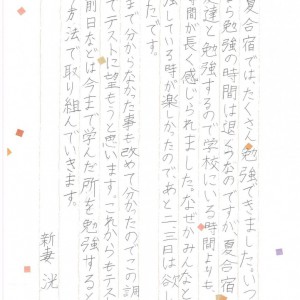 夏合宿では、たくさん勉強できました。いつ
る勉強の時間は退くつなのですが、夏合宿
友達と勉強するので学校にいる時間よりも、
時間が長く感じられました。なぜかみんなと
強している時が楽しかったので、あと二、三日は欲し
たです。
まで分からなかった事も改めて分かったのでこの調
でテストに望もうと思います。これからもテス
前日などは今まで学んだ所を勉強すると
方法で取り組んでいきます。
新妻 洸